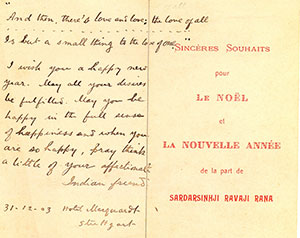 "And then, there's love and love; the love of all
Is but a small thing to the love of one"
I wish you a happy new
year. May all your desires
be fulfilled. May you be
happy in the full sense
of happiness and when you
are so happy, pray think
a little of your affectionate
Indian friend
31-12-03 Hotel Marquardt
Stuttgart
SINCÈRES SOUHAITS
pour
LE NOËL
et
LA NOUVELLE ANNÉE
de la part de
SARDARSINHJI RAVAJI RANA